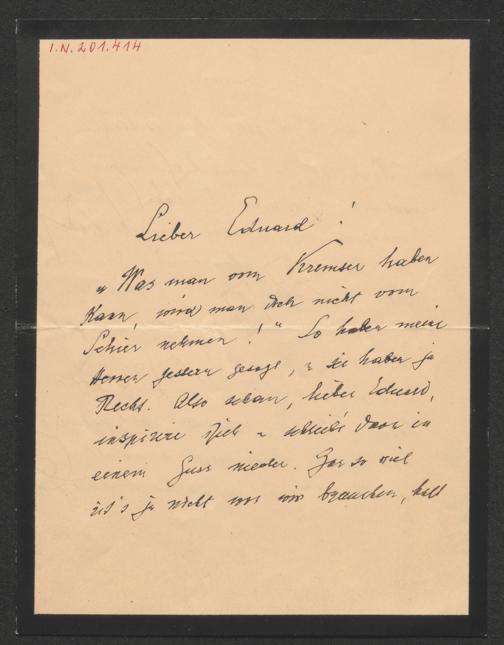 I.N. 201.414
Lieber Eduard!
„Was man vom Kremser haben
kann, wird man doch nicht vom
Schier nehmen!" So haben meine
Herren gestern gesagt, u sie haben ja
Recht. Also schau, lieber Eduard,
inspirire Dich u schreib's dann in
einem Guss nieder. Gar so viel
ist's ja nicht was wir brauchen, halt